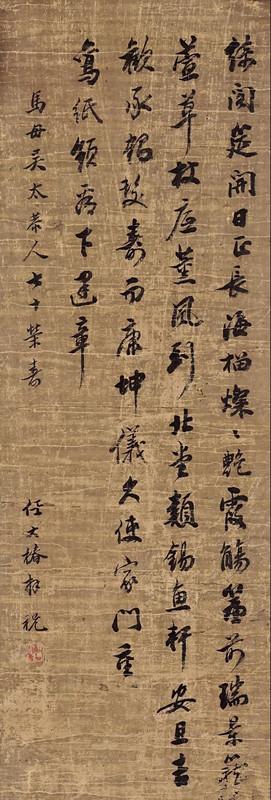 閤筵開日正長海榴燦〻艷霞觴簷前瑞景
萱草枝應薰風到北堂類錫魚軒安且吉
歡承鶴髮壽而康坤儀久使家門重
鸞紙領看下建章
馬母吳太恭人七十榮壽
任大椿拜祝